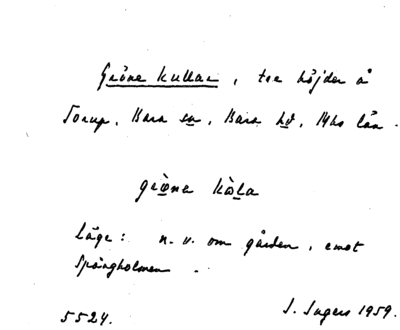 Gröne kullar, tre höjder å
Torup, Bara sn, Bara hd, Mhs län.
grøna kola
Läge: n. v. om gården, emot
Spångholmen.
5524.
J. Ingers 1959.